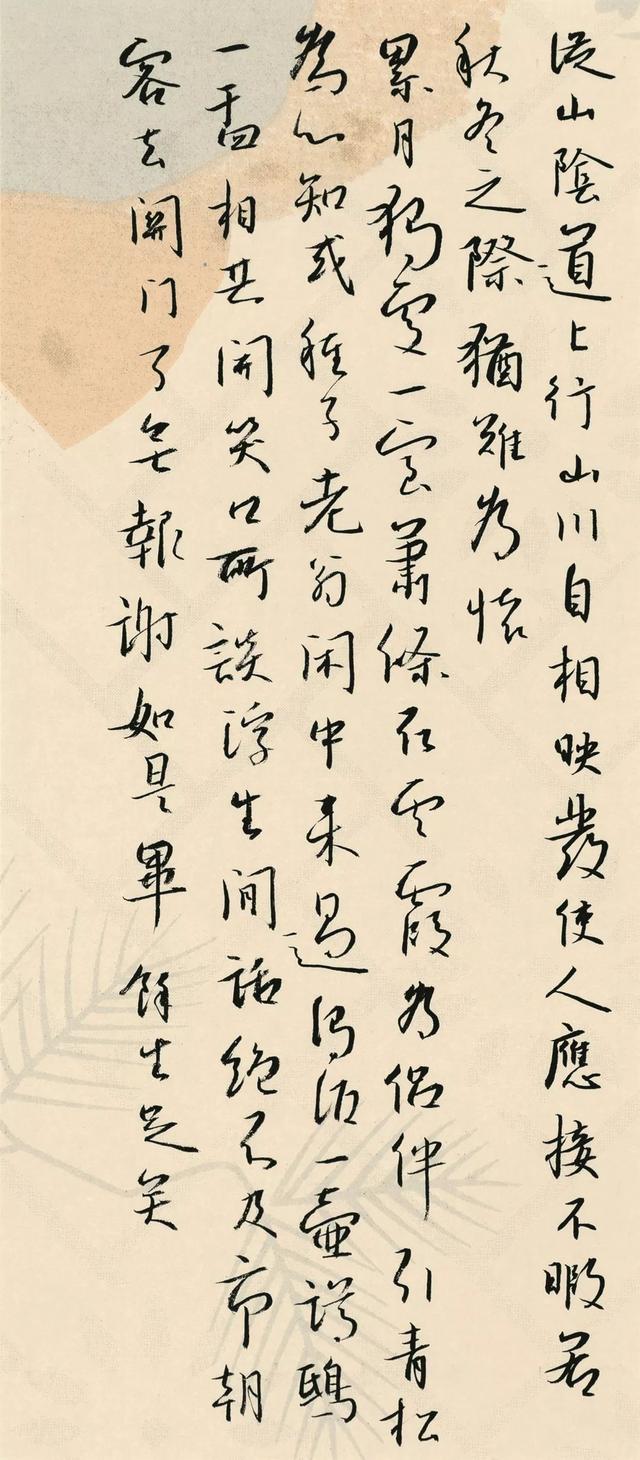 從山陰道上行山川自相映發使人應接不暇若
秋冬之際猶難為懷
累月獨處一室蕭條取雲霞為侶伴引青松
為心知或稚子老翁閑中來過濁酒一壺蹲鴟
一盂相共開笑口所談浮生間話絕不及市朝
客去關門了無報謝如是畢餘生足矣